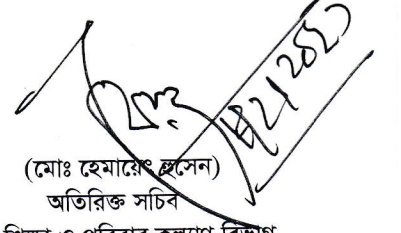 (মোঃ হেমায়েৎ হুসেন)
অতিরিক্ত সচিব
শিক্ষা ও পরিবার কল্যাণ বিভাগ